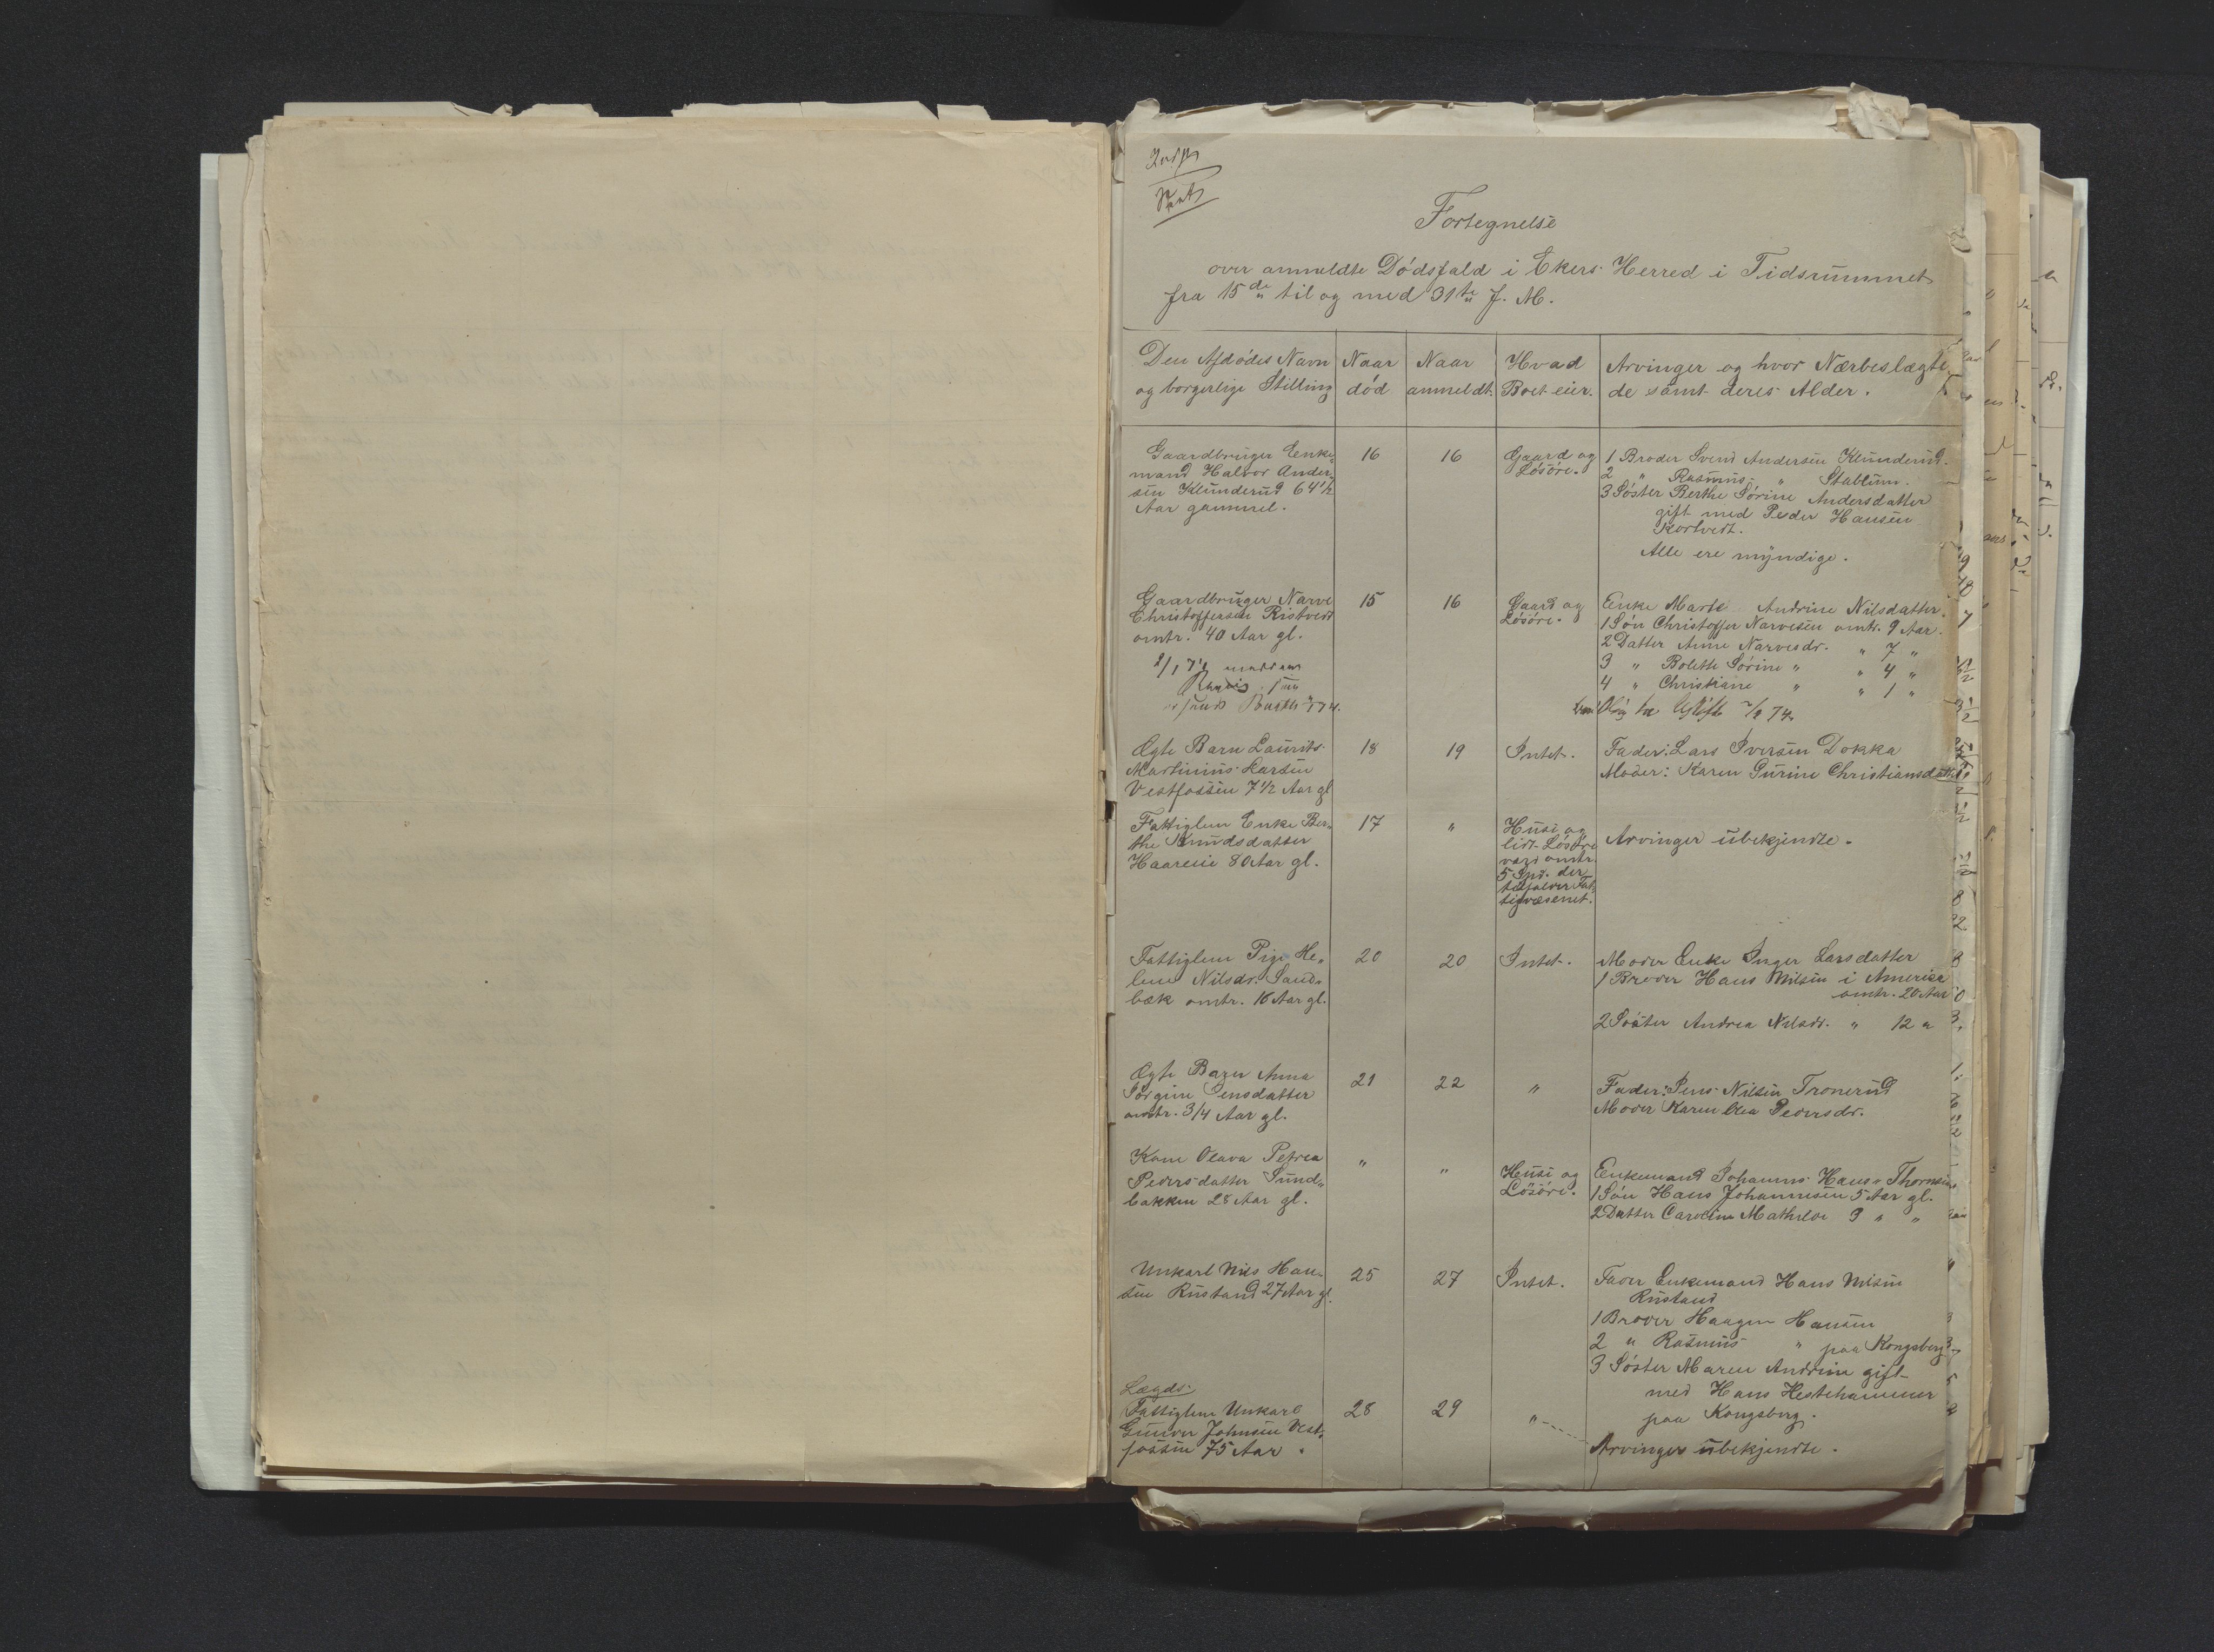 Fortegnelse
over anmeldte Dödsfald i Ekers Herred i Tidsrummet
fra 15de til og med 31te f. M.
Den Afdödes Navn og borgerlige Stilling
Naar död
Naar anmeldt.
Hvad Boet eier.
Arvinger og hvor Nærbeslægtede samt deres Alder.
Gaardbruger Enke-
mand Halvor Ander-
sen Klunderud 64 1/2
Aar gammel.
16
16
Gaard og
Lösöre.
1 Broder Svend Andersen Klunderud.
2 " Rasmus " Stablum.
3 Söster Berthe Sörine Andersdatter
gift med Peder Hansen
Kortvedt.
Alle ere myndige.
Gaardbruger Narve
Christoffersen Ristvedt
omtr. 40 Aar gl.
15
16
Gaard og
Lösöre.
Enke Marte Andrine Nilsdatter.
1 Sön Christoffer Narvesen omtr. 9 Aar.
2 Datter Anne Narvesdr. " 7 "
3 " Bolette Sörine " " 4 "
4 " Christiane " " 1 "
Ægte Barn Laurits
Martinius Larsen
Vestfossen 7 1/2 Aar gl
18
19
Intet.
Fader: Lars Iversen Dokka
Moder: Karen Gurine Christiansdatter
Fattiglem Enke Ber-
the Knudsdatter
Haareie 80 Aar gl.
17
"
Husi og
lidt Lösöre
værd omtr.
5 Spd. der
tilfalder Fat-
tigvæsenet.
Arvinger ubekjendte.
Fattiglem Pige He-
lene Nilsdr. Sand-
bæk omtr. 16 Aar gl.
20
20
Intet.
Moder Enke Inger Larsdatter
1 Broder Hans Nilsen i Amerika
omtr. 20 Aar
2 Söster Andrea Nilsdr. " 12 "
Ægte Barn Anna
Jörgine Jensdatter
omtr. 3/4 Aar gl.
21
22
"
Fader: Jens Nilsen Tronerud
Moder Karen Olea Pedersdr.
Kone Olava Petrea
Pedersdatter Sund-
bakken 28 Aar gl.
"
"
Husi og
Lösöre.
Enkemand Johannes Hans. Thornsen
1 Sön Hans Johannesen 5 Aar gl.
2 Datter Caroline Mathilde 3 " "
Unkarl Nils Han-
sen Rustand 27 Aar gl.
25
27
Intet.
Fader Enkemand Hans Nilsen
Rustand
1 Broder Haagen Hansen
2 " Rasmus " paa Kongsberg
3 Söster Maren Andrine gift
med Hans Hestehammer
paa Kongsberg.
Lægds-
Fattiglem Unkarl
Gunder Johnsen Vest-
fossen 75 Aar.
28
29
"
Arvinger ubekjendte.